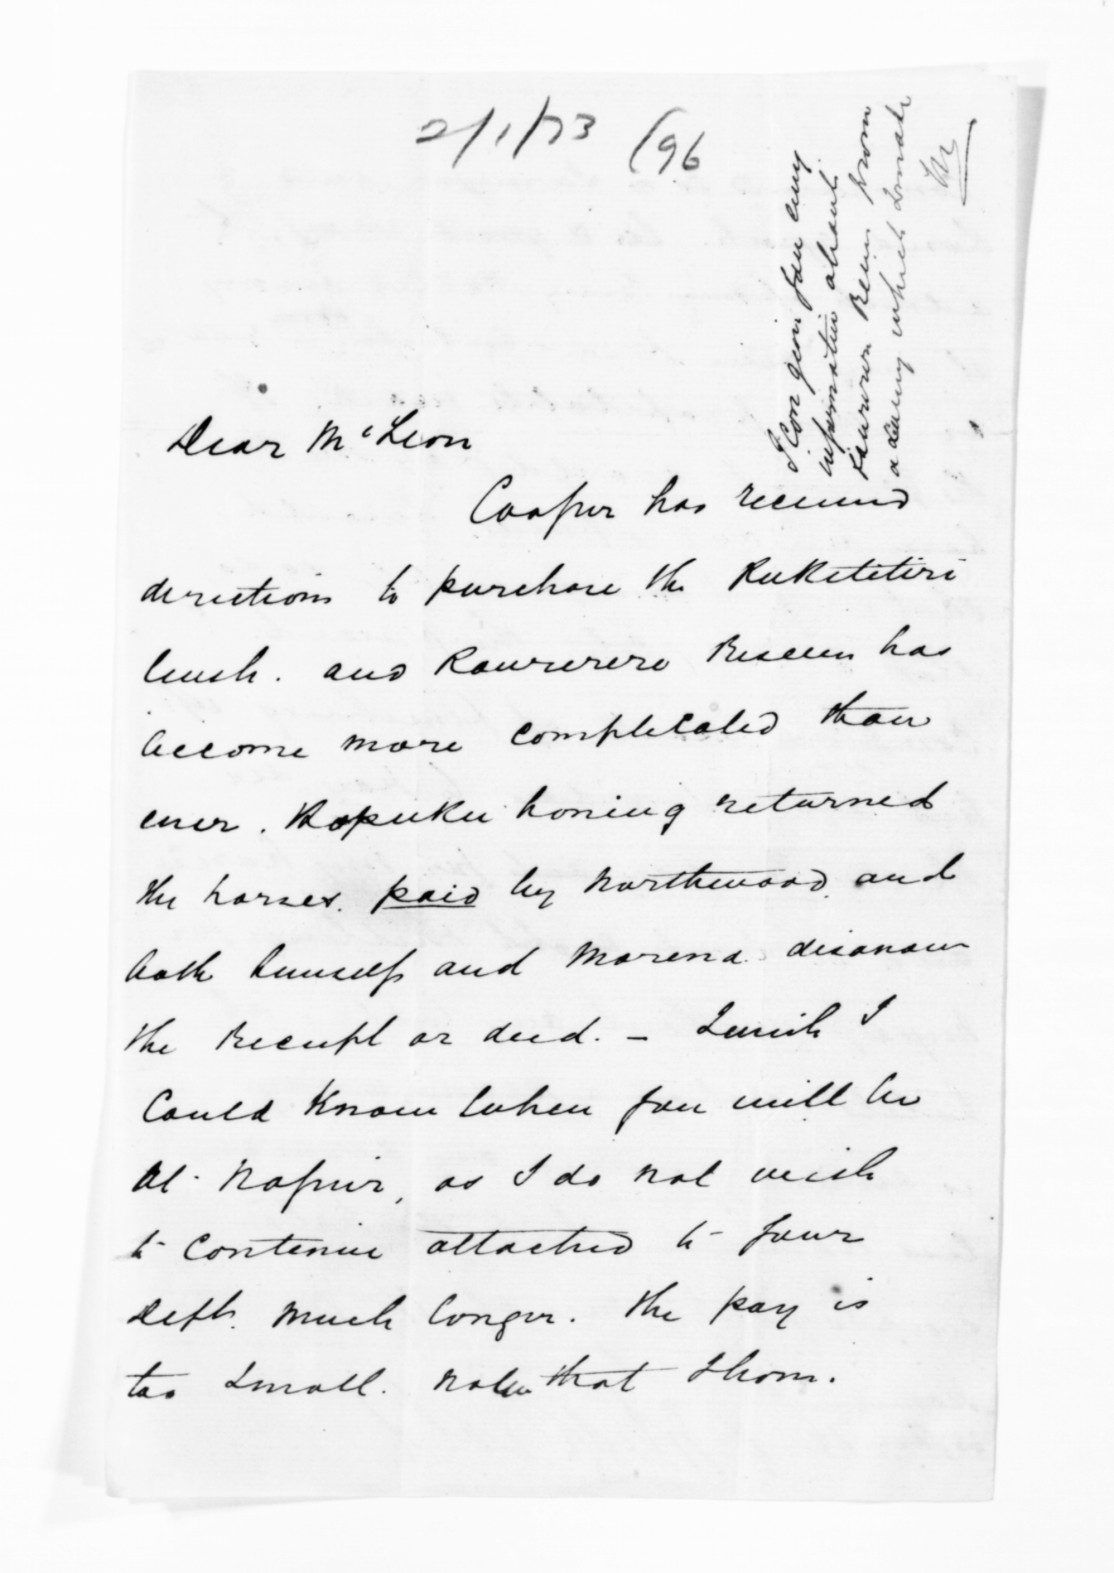 2/1/73 (96
I can give you any
information about
Raurere Rein from
a diary which I made
Dear McLean
Cooper has received
directions to purchase the Puketitiri
bush. and Raurerere Reserve has
become more complicated than
ever. Kopuku having returned
the horses. paid by Northwood and
both himself and Morena. disavow
the Receipt or deed. - I wish I
Could Know when you will be
at Napier, as I do not wish
to continue attached to your
Dept. much longer. the pay is
too small. that I have.